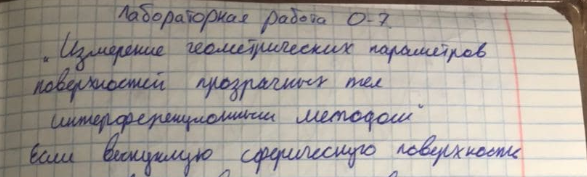 Лабораторная работа О-7.
"Измерение геометрических параметров
поверхностей прозрачных тел
интерференционным методом"
Если выпуклую сферическую поверхность